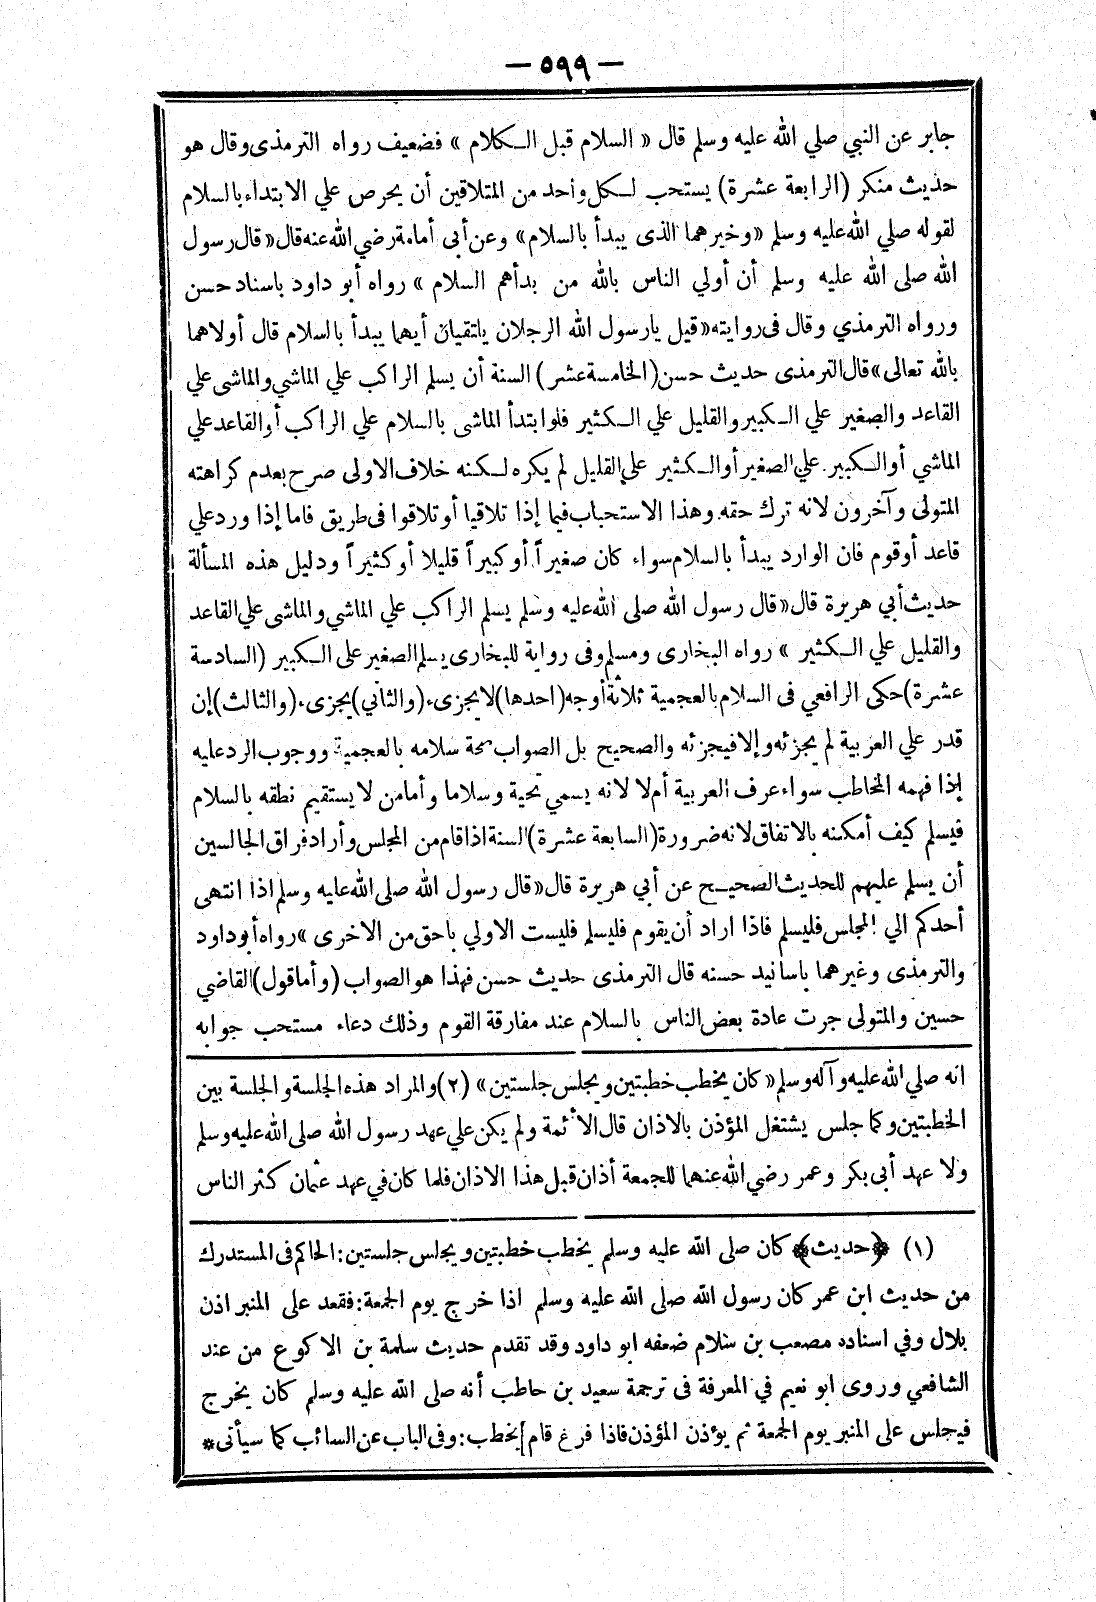 — ٥٩٩ —
جابر عن النبي صلي الله عليه وسلم قال « السلام قبل الـكلام » فضعيف رواه الترمذى وقال هو
حديث منكر (الرابعة عشرة) يستحب لـكل واحد من المتلاقين أن يحرص علي الابتداء بالسلام
لقوله صلي الله عليه وسلم «وخيرهما الذى يبدأ بالسلام» وعن أبى أمامة رضي الله عنه قال «قال رسول
الله صلى الله عليه وسلم أن أولي الناس بالله من بدأهم السلام » رواه أبو داود باسناد حسن
ورواه الترمذي وقال فى روايته «قيل يارسول الله الرجلان يلتقيان أيهما يبدأ بالسلام قال أولاهما
بالله تعالى» قال الترمذى حديث حسن (الخامسة عشر) السنة أن يسلم الراكب علي الماشي والماشى علي
القاعد والصغير علي الـكبير والقليل علي الـكثير فلو ابتدأ الماشى بالسلام علي الراكب أو القاعد علي
الماشي أو الـكبير علي الصغير أو الـكثير علي القليل لم يكره لـكنه خلاف الاولى صرح بعدم كراهته
المتولى وآخرون لانه ترك حقه وهذا الاستحباب فيما إذا تلاقيا أو تلاقوا فى طريق فاما إذا ورد علي
قاعد أو قوم فان الوارد يبدأ بالسلام سواء كان صغيراً أو كبيراً قليلا أو كثيراً ودليل هذه المسألة
حديث أبي هريرة قال «قال رسول الله صلى الله عليه وسلم يسلم الراكب علي الماشي والماشى علي القاعد
والقليل علي الـكثير » رواه البخارى ومسلم وفى رواية للبخارى يسلم الصغير على الـكبير (السادسة
عشرة) حكى الرافعي فى السلام بالعجمية ثلاثة أوجه (احدها) لا يجزىء (والثاني) يجزىء (والثالث) إن
قدر علي العربية لم يجزئه وإلا فيجزئه والصحيح بل الصواب صحة سلامه بالعجمية ووجوب الرد عليه
إذا فهمه المخاطب سواء عرف العربية أم لا لانه يسمي تحية وسلاما وأما من لا يستقيم نطقه بالسلام
فيسلم كيف أمكنه بالاتفاق لانه ضرورة (السابعة عشرة) السنة اذا قام من المجلس وأراد فراق الجالسين
أن يسلم عليهم للحديث الصحيـح عن أبي هريرة قال «قال رسول الله صلى الله عليه وسلم اذا انتهى
أحدكم الي المجلس فليسلم فاذا اراد أن يقوم فليسلم فليست الاولي باحق من الاخرى » رواه أبو داود
والترمذى وغيرهما باسانيد حسنه قال الترمذى حديث حسن فهذا هو الصواب (وأما قول) القاضي
حسين والمتولى جرت عادة بعض الناس بالسلام عند مفارقة القوم وذلك دعاء مستحب جوابه
انه صلي الله عليه وآله وسلم «كان يخطب خطبتين ويجلس جلستين» (٢) والمراد هذه الجلسة والجلسة بين
الخطبتين وكما جلس يشتغل المؤذن بالاذان قال الأئمة ولم يكن علي عهد رسول الله صلى الله عليه وسلم
ولا عهد أبى بكر وعمر رضي الله عنهما للجمعة أذان قبل هذا الاذان فلما كان في عهد عثمان كثر الناس
(١) ﴿حديث﴾ كان صلى الله عليه وسلم يخطب خطبتين ويجلس جلستين: الحاكم فى المستدرك
من حديث ابن عمر كان رسول الله صلى الله عليه وسلم اذا خرج يوم الجمعة: فقعد على المنبر اذن
بلال وفي اسناده مصعب بن سلام ضعفه ابو داود وقد تقدم حديث سلمة بن الاكوع من عند
الشافعي وروى ابو نعيم في المعرفة فى ترجمة سعيد بن حاطب أنه صلى الله عليه وسلم كان يخرج
فيجلس على المنبر يوم الجمعة ثم يؤذن المؤذن فاذا فرغ قام يخطب: وفى الباب عن السائب كما سيأتى *